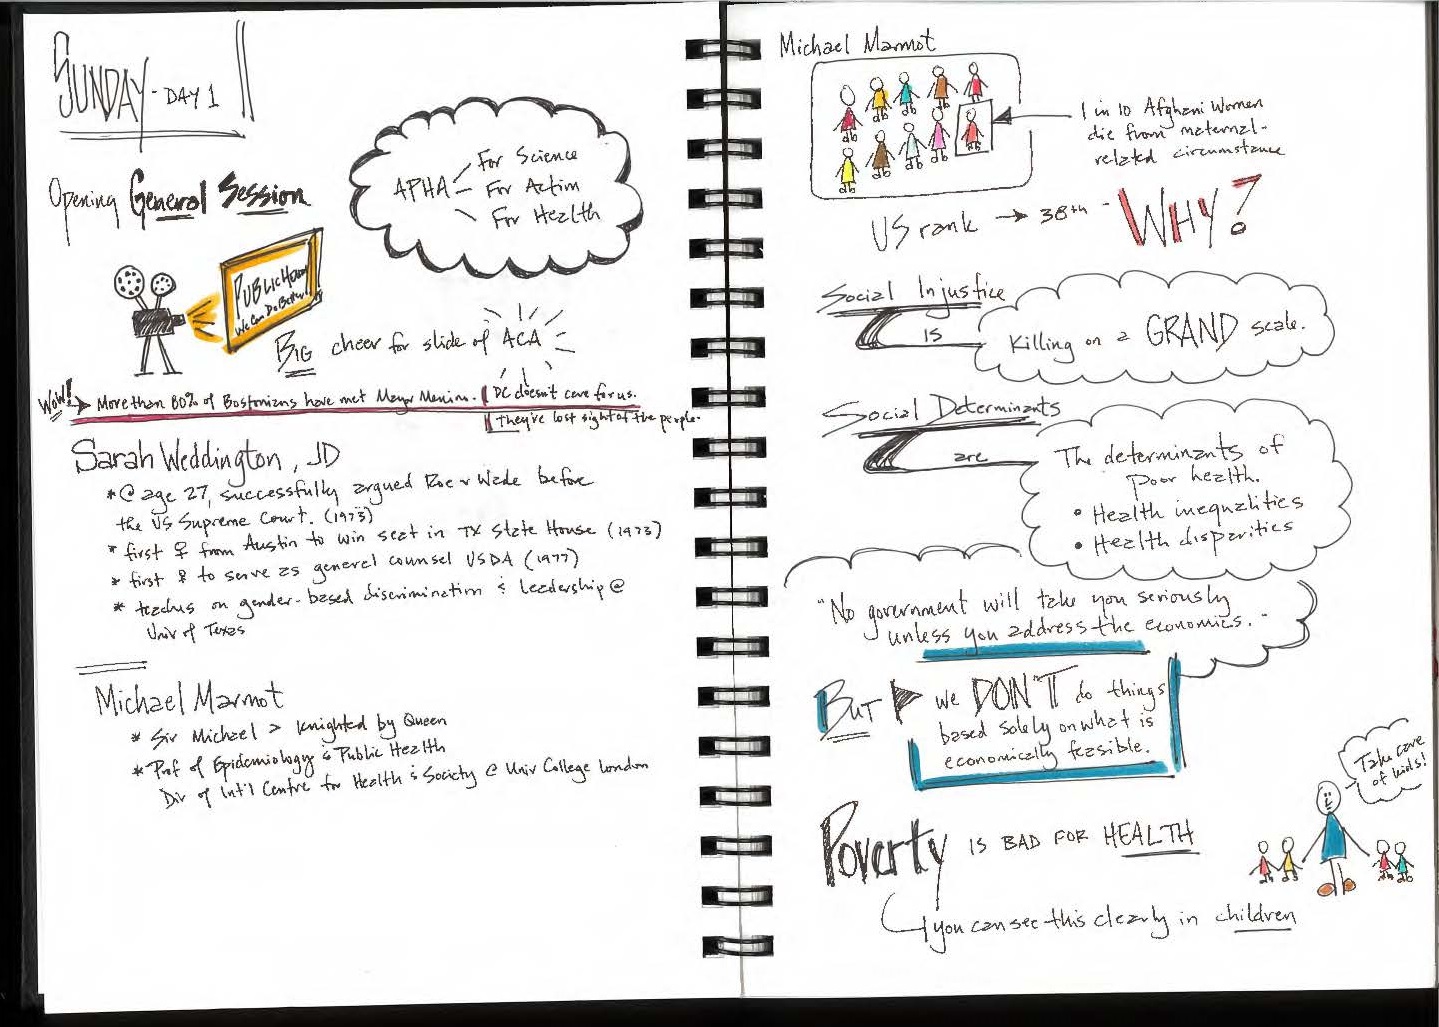 SUNDAY - DAY 1
Opening General Session
APHA
For Science
For Action
For Health
PUBLIC HEALTH
We Can Do Better!!!
BIG cheer for slide of ACA
WOW!
More than 80% of Bostonians have met Mayor Menino.
DC doesn't care for us.
They've lost sight of the people.
Sarah Weddington, JD
* @ age 27, successfully argued Roe v Wade before
the US Supreme Court. (1973)
* first ♀ from Austin to win seat in TX State House (1973)
* first ♀ to serve as general counsel USDA (1977)
* teaches on gender-based discrimination & leadership @
Univ of Texas
Michael Marmot
* Sir Michael > knighted by Queen
* Prof of Epidemiology & Public Health
Div of Int'l Centre for Health & Society @ Univ College London
Michael Marmot
1 in 10 Afghani Women
die from maternal-
related circumstance
US rank → 38th - WHY?
Social Injustice
IS
Killing on a GRAND scale.
Social Determinants
are
The determinants of
poor health.
• Health inequalities
• Health disparities
"No government will take you seriously
unless you address the economics."
BUT ▶ we DON'T do things
based solely on what is
economically feasible.
Take care
of kids!
Poverty IS BAD FOR HEALTH
you can see this clearly in children